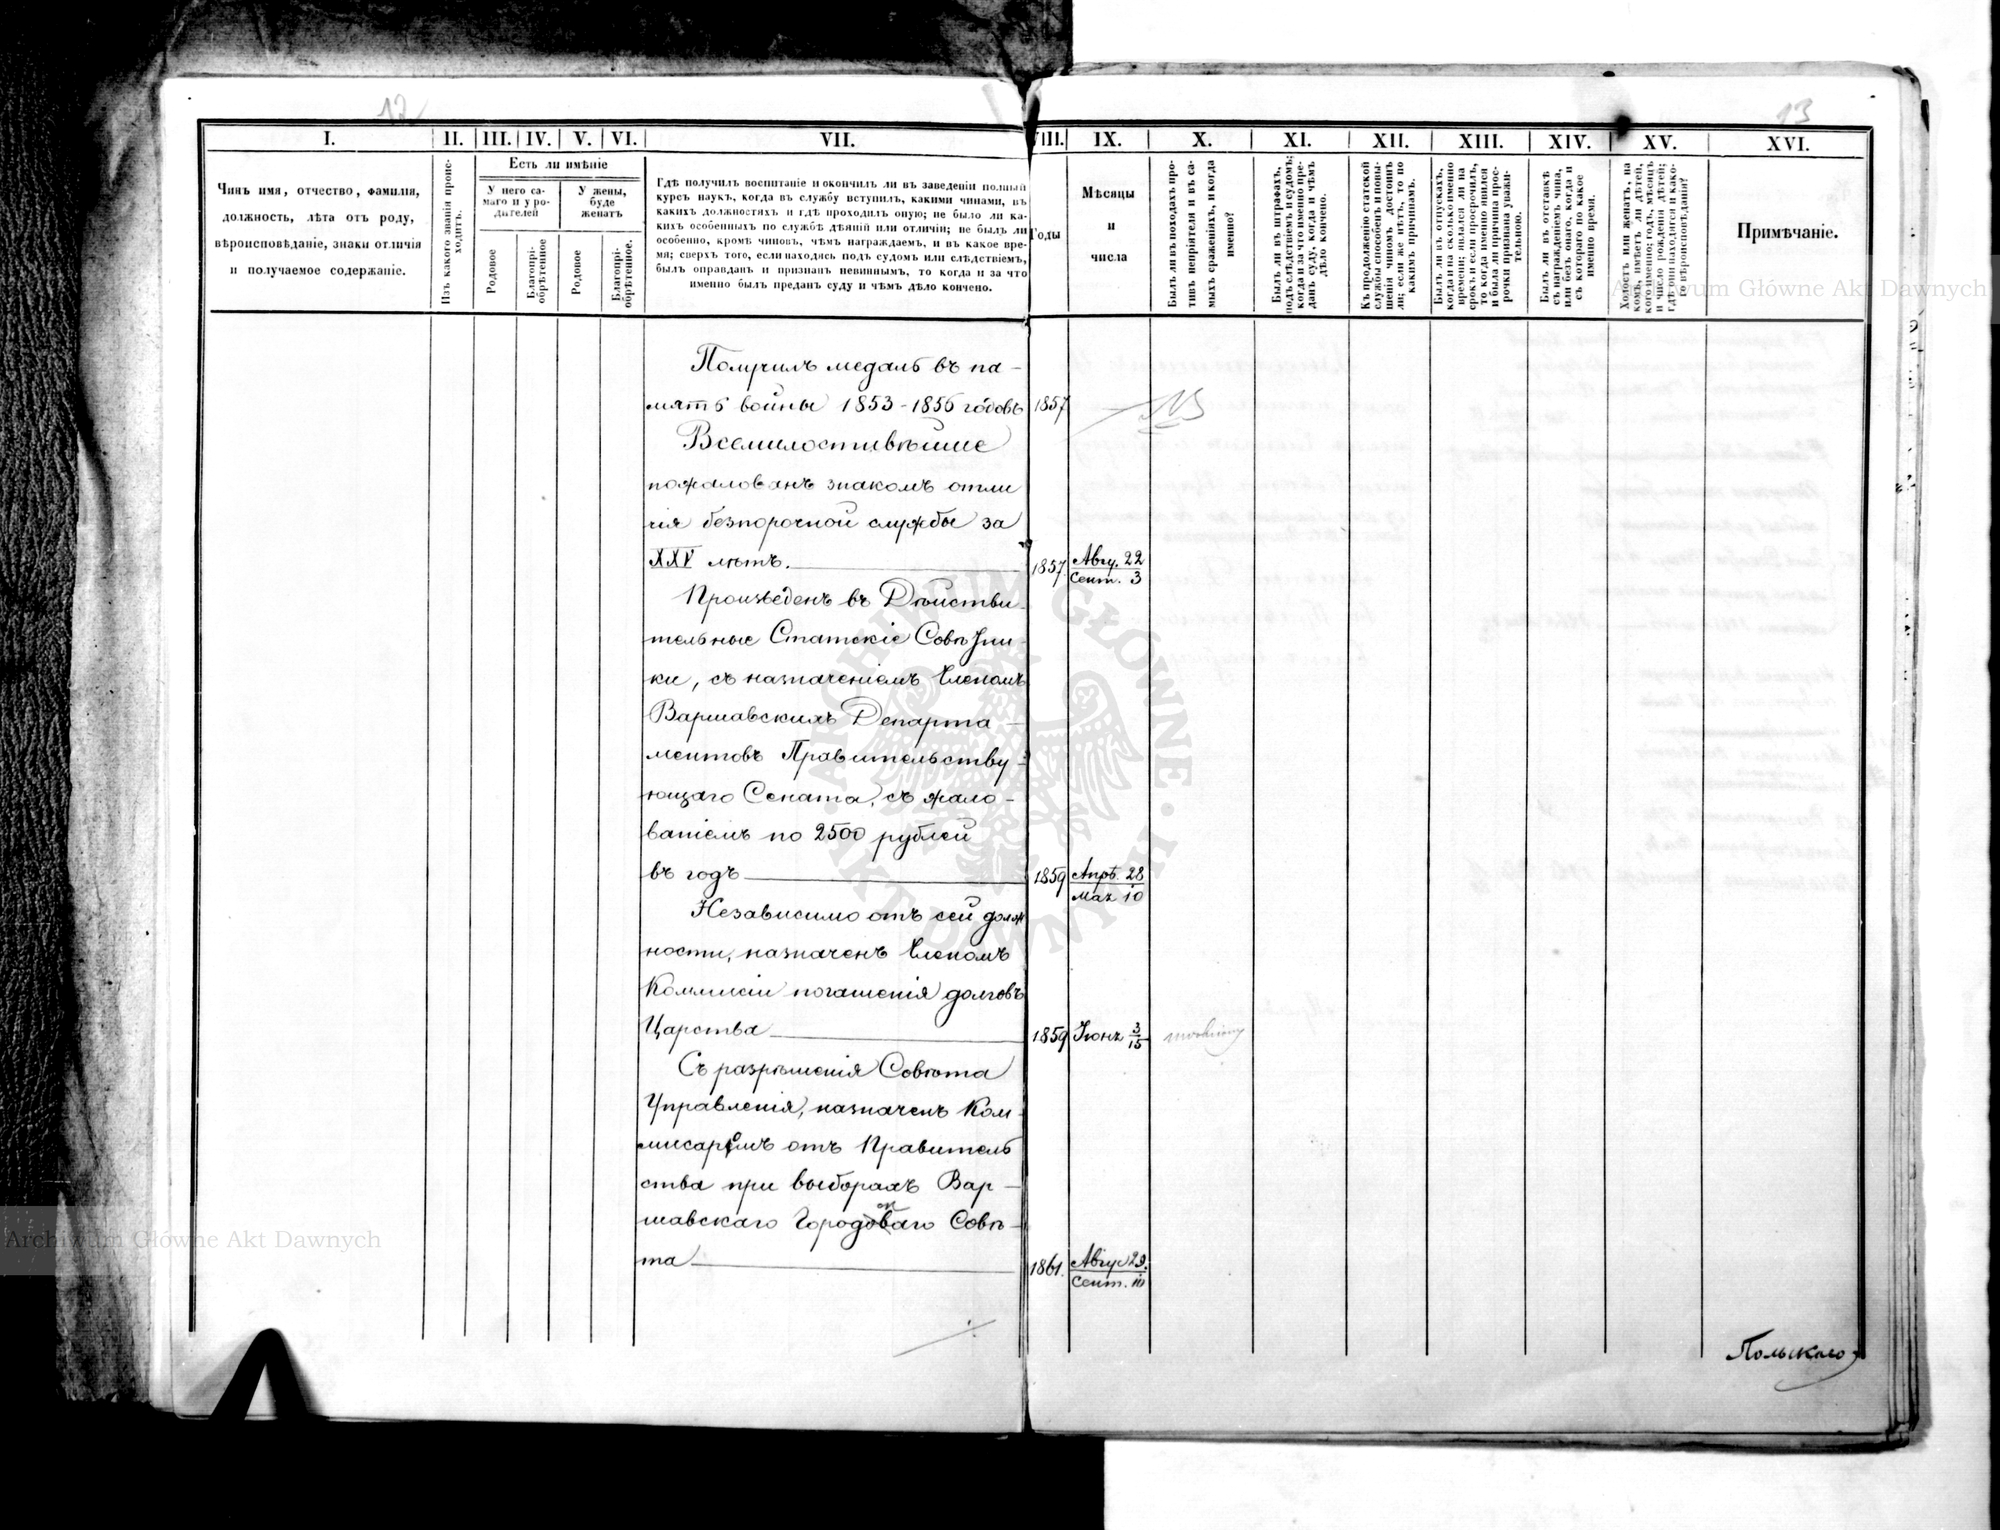 12
13
I.
II.
III.
IV.
V.
VI.
VII.
VIII.
IX.
X.
XI.
XII.
XIII.
XIV.
XV.
XVI.
Чинъ имя, отчество, фамилія,
должность, лѣта отъ роду,
вѣроисповѣданіе, знаки отличія
и получаемое содержаніе.
Изъ какого званія проис-
ходитъ.
Есть ли имѣніе
У него са-
маго и у ро-
дителей
У жены,
буде
женатъ
Родовое
Благопрі-
обрѣтенное
Родовое
Благопрі-
обрѣтенное.
Гдѣ получилъ воспитаніе и окончилъ ли въ заведеніи полный
курсъ наукъ, когда въ службу вступилъ, какими чинами, въ
какихъ должностяхъ и гдѣ проходилъ оную; не было ли ка-
кихъ особенныхъ по службѣ дѣяній или отличій; не былъ ли
особенно, кромѣ чиновъ, чѣмъ награждаемъ, и въ какое вре-
мя; сверхъ того, если находясь подъ судомъ или слѣдствіемъ,
былъ оправданъ и признанъ невиннымъ, то когда и за что
именно былъ преданъ суду и чѣмъ дѣло кончено.
Годы
Мѣсяцы
и
числа
Былъ ли въ походахъ про-
тивъ непріятеля и въ са-
мыхъ сраженіяхъ, и когда
именно?
Былъ ли въ штрафахъ,
подъ слѣдствіемъ и судомъ;
когда и за что именно пре-
данъ суду, когда и чѣмъ
дѣло кончено.
Къ продолженію статской
службы способенъ и повы-
шенія чиномъ достоинъ
ли; если же нѣтъ, то по
какимъ причинамъ.
Былъ ли въ отпускахъ,
когда и на сколько именно
времени; явился ли на
срокъ и если просрочилъ,
то когда именно явился
и была ли причина прос-
рочки признана уважи-
тельною.
Былъ ли въ отставкѣ
съ награжденіемъ чина,
или безъ онаго, когда и
съ котораго по какое
именно время.
Холостъ или женатъ, на
комъ, имѣетъ ли дѣтей,
кого именно; годъ, мѣсяцъ
и число рожденія дѣтей;
гдѣ они находятся и како-
го вѣроисповѣданія?
Примѣчаніе.
Получилъ медаль въ па-
мять войны 1853-1856 годовъ 1857
Всемилостивѣйше
пожалованъ знакомъ отли
чія безпорочной службы за
XXV лѣтъ. 1857 Авгу. 22
Сент. 3
Произведенъ въ Дѣйстви-
тельные Статскіе Совѣтни-
ки, съ назначеніемъ Членомъ
Варшавскихъ Департа-
ментовъ Правительству-
ющаго Сената, съ жало-
ваніемъ по 2500 рублей
въ годъ 1859 Апрѣ. 28
Мая 10
Независимо отъ сей долж
ности, назначенъ Членомъ
Коммисіи погашенія долговъ
Царства 1859 Іюня 3
15
Съ разрѣшенія Совѣта
Управленія, назначенъ Ком-
мисаромъ отъ Правитель
ства при выборахъ Вар-
шавскаго Городоваго Совѣ-
та 1861. Авгус 29.
Сент. 10
Польскаго
Archiwum Główne Akt Dawnych
Archiwum Główne Akt Dawnych
ARCHIWUM GŁÓWNE AKT DAWNYCH